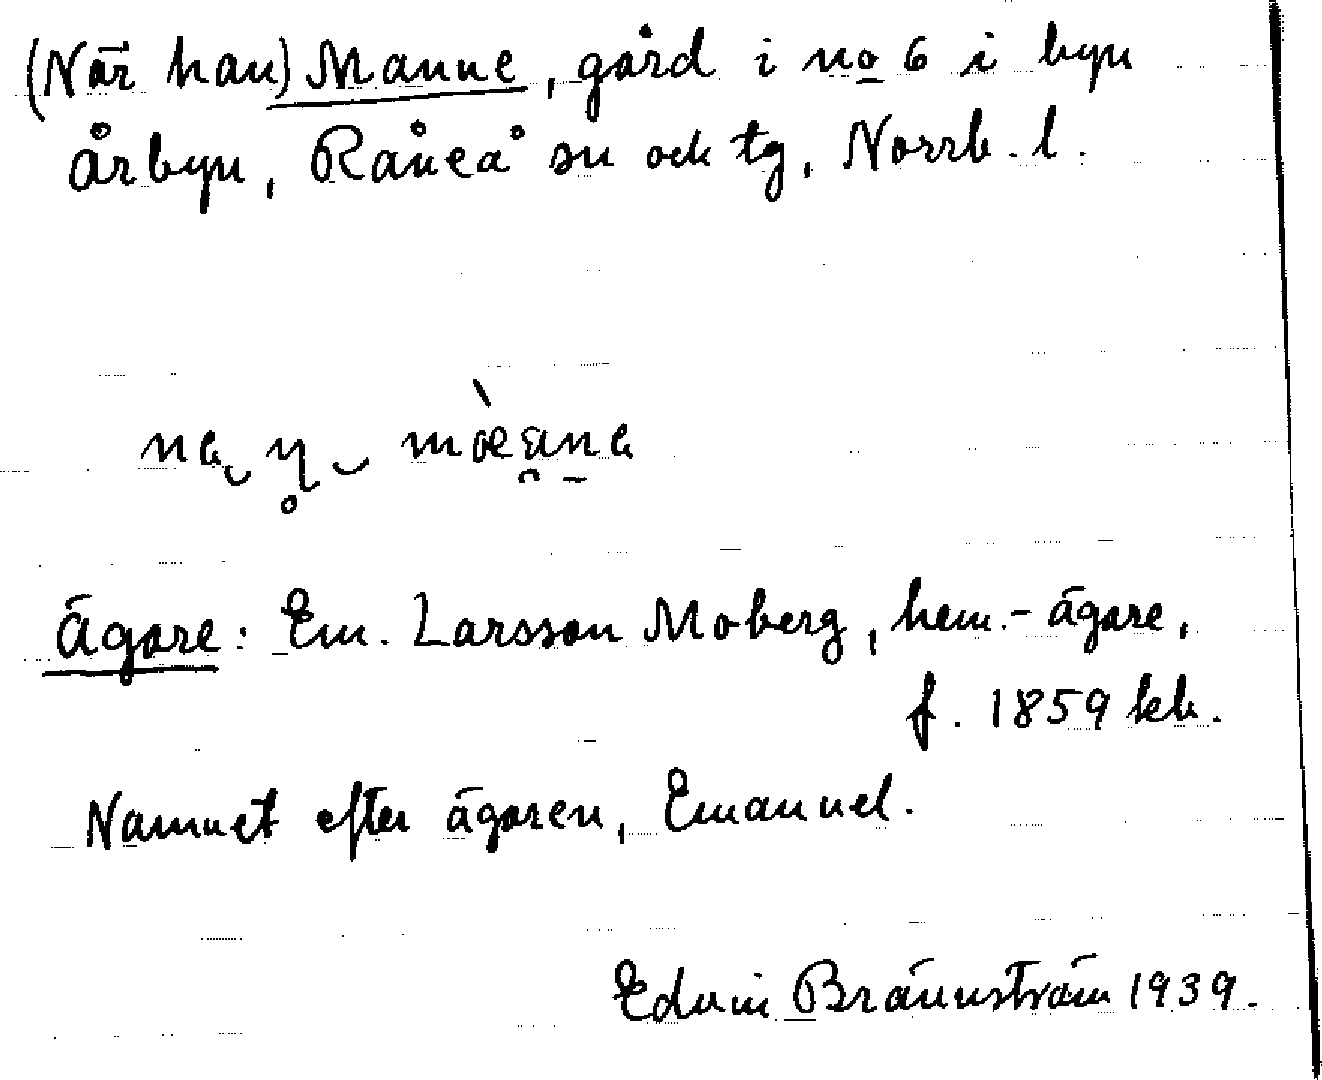 (När han) Manne, gård i no 6 i byn
Årbyn, Råneå sn och tg, Norrb. l.
Ägare: Em. Larsson Moberg, hem.-ägare,
f. 1859 kb.
Namnet efter ägaren, Emanuel.
Edvin Brännström 1939.